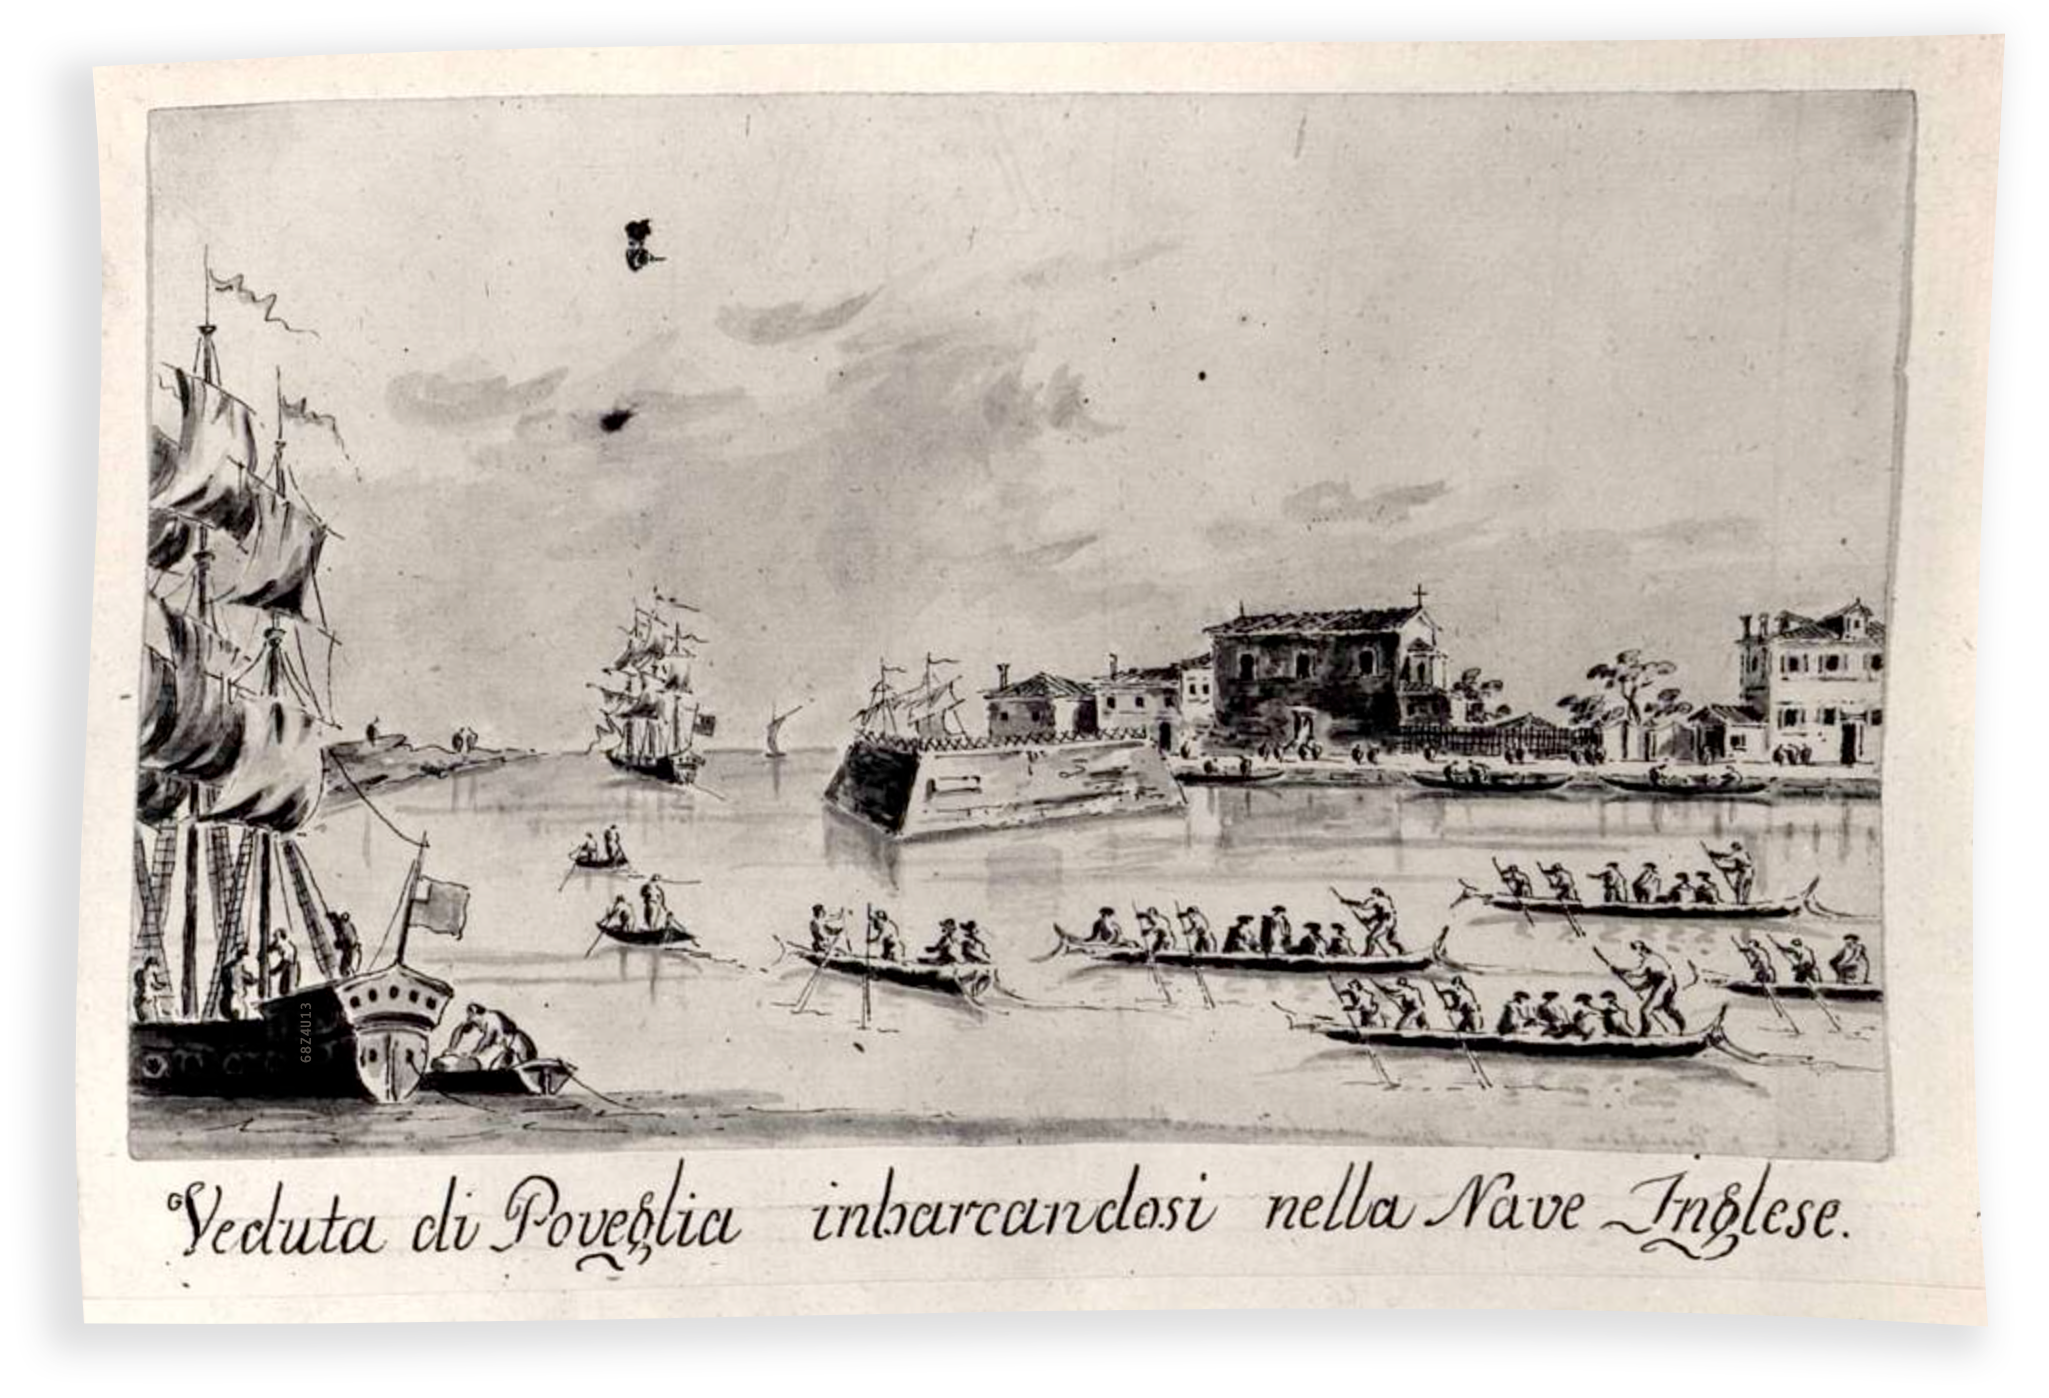 68Z4U13
Veduta di Poveglia inbarcandosi nella Nave Inglese.